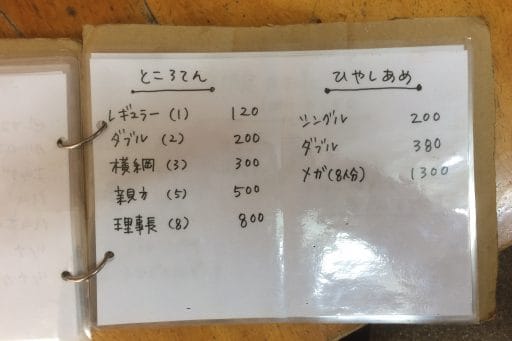 ところてん
レギュラー (1) 120
ダブル (2) 200
横綱 (3) 300
親方 (5) 500
理事長 (8) 800
ひやしあめ
シングル 200
ダブル 380
メガ(8人分) 1300